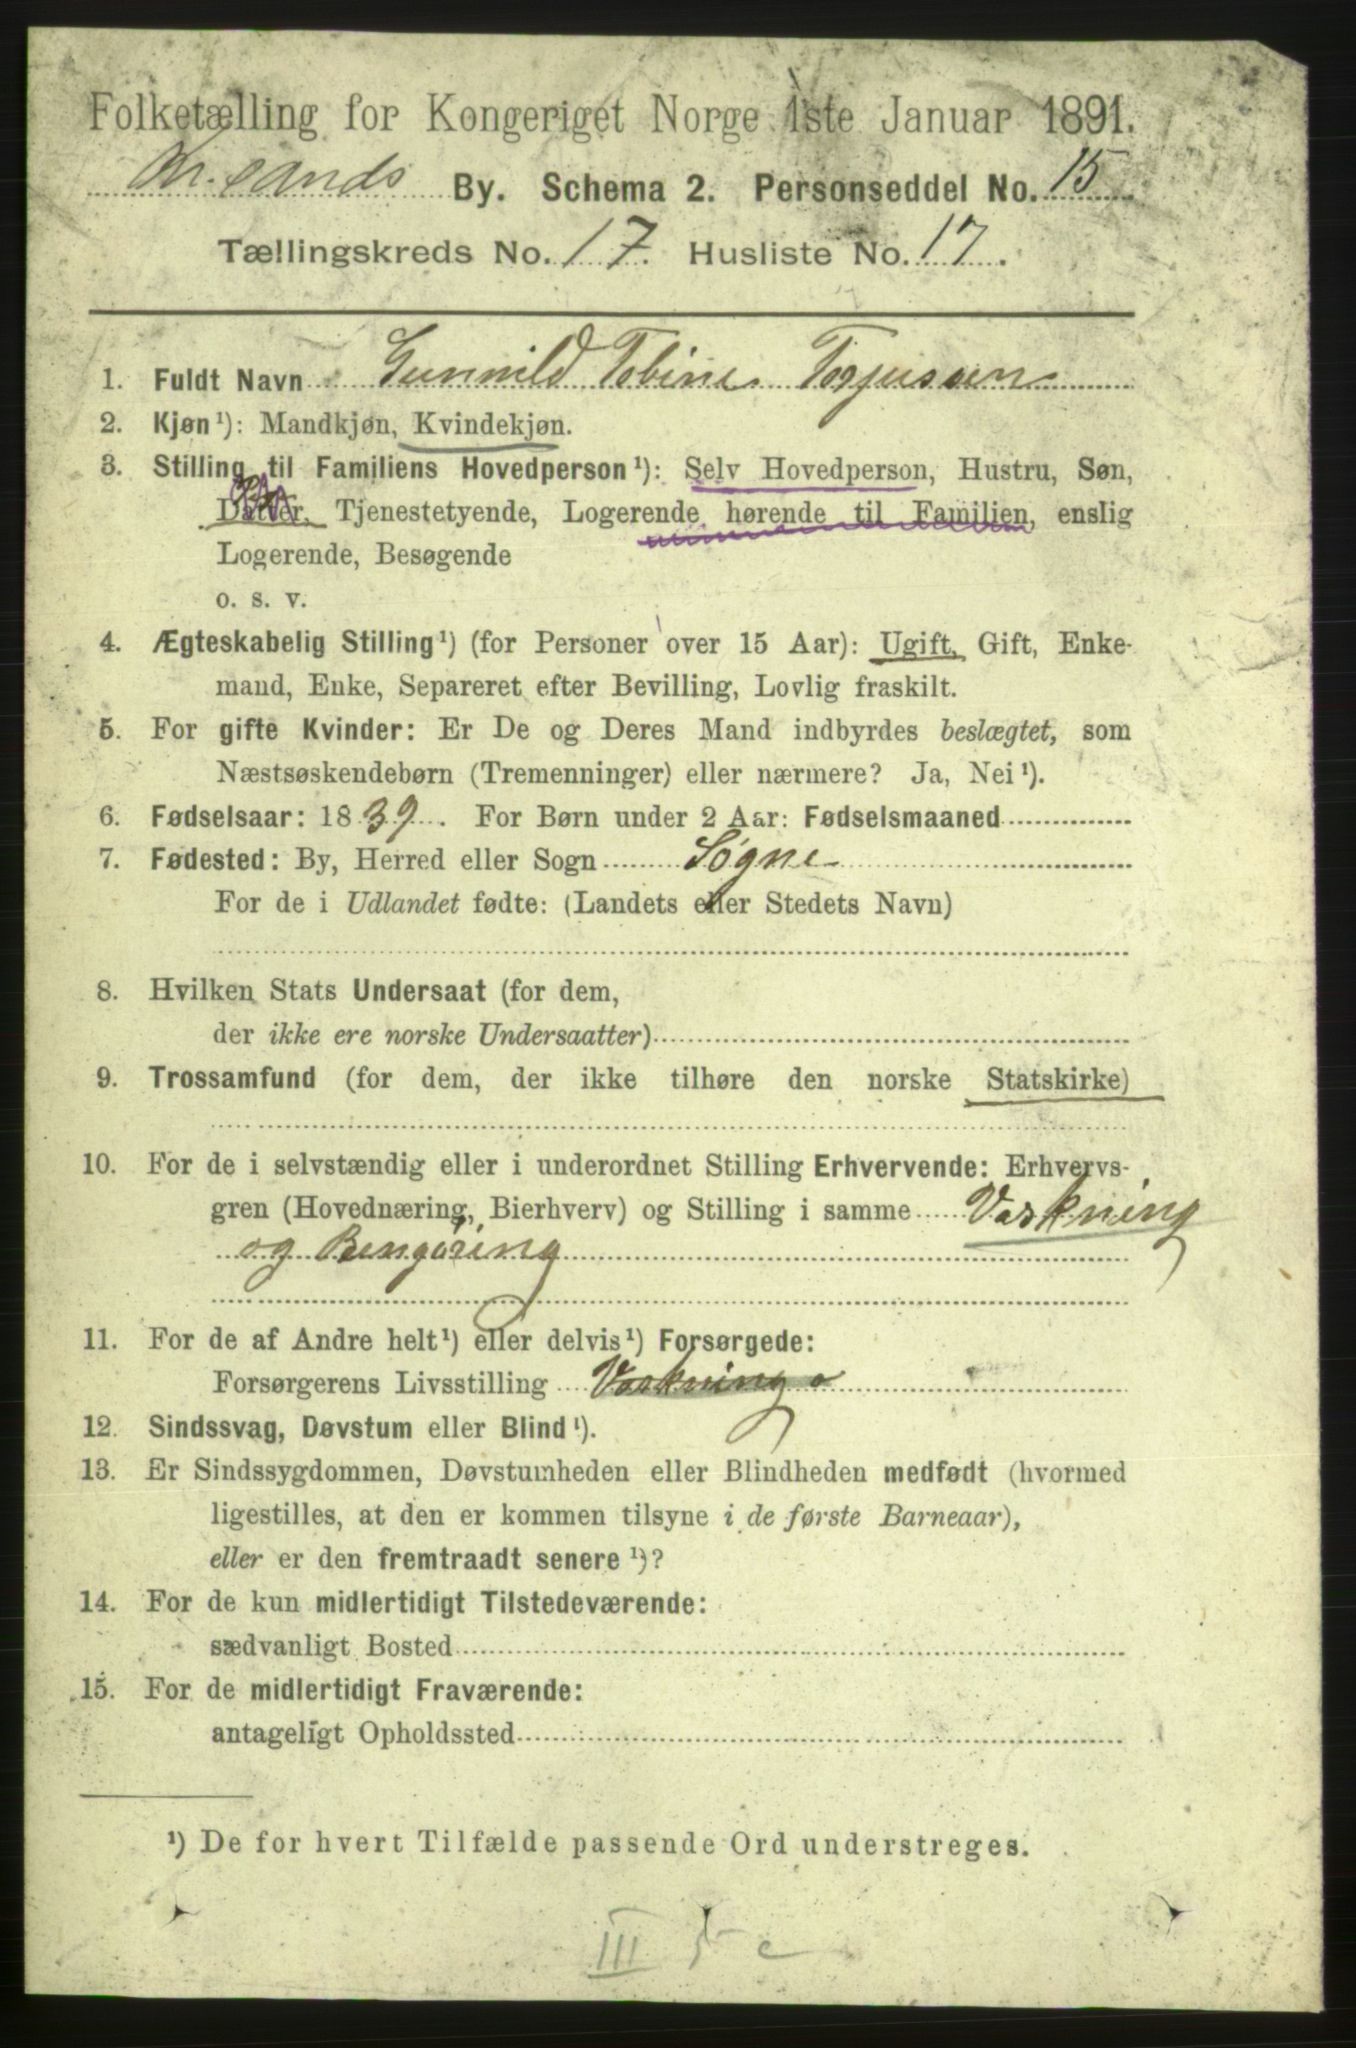 Folketælling for Kongeriget Norge 1ste Januar 1891.
Kr.sands By. Schema 2. Personseddel No. 15
Tællingskreds No. 17. Husliste No. 17.
1. Fuldt Navn Gunvild Tobine Torjussen
2. Kjøn¹): Mandkjøn, Kvindekjøn.
3. Stilling til Familiens Hovedperson¹): Selv Hovedperson, Hustru, Søn,
Datter, Tjenestetyende, Logerende hørende til Familien, enslig
Logerende, Besøgende
o. s. v.
4. Ægteskabelig Stilling¹) (for Personer over 15 Aar): Ugift, Gift, Enke-
mand, Enke, Separeret efter Bevilling, Lovlig fraskilt.
5. For gifte Kvinder: Er De og Deres Mand indbyrdes beslægtet, som
Næstsøskendebørn (Tremenninger) eller nærmere? Ja, Nei¹).
6. Fødselsaar: 1839. For Børn under 2 Aar: Fødselsmaaned
7. Fødested: By, Herred eller Sogn Søgne
For de i Udlandet fødte: (Landets eller Stedets Navn)
8. Hvilken Stats Undersaat (for dem,
der ikke ere norske Undersaatter)
9. Trossamfund (for dem, der ikke tilhøre den norske Statskirke)
10. For de i selvstændig eller i underordnet Stilling Erhvervende: Erhvervs-
gren (Hovednæring, Bierhverv) og Stilling i samme Vaskning
og Rengøring
11. For de af Andre helt¹) eller delvis¹) Forsørgede:
Forsørgerens Livsstilling Vaskning o
12. Sindssvag, Døvstum eller Blind¹).
13. Er Sindssygdommen, Døvstumheden eller Blindheden medfødt (hvormed
ligestilles, at den er kommen tilsyne i de første Barneaar),
eller er den fremtraadt senere¹)?
14. For de kun midlertidigt Tilstedeværende:
sædvanligt Bosted
15. For de midlertidigt Fraværende:
antageligt Opholdssted
¹) De for hvert Tilfælde passende Ord understreges.
III 5 c